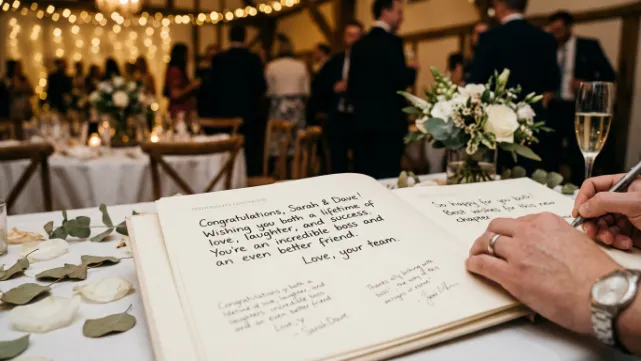 Congratulations, Sarah & Dave!
Wishing you both a lifetime of
love, laughter, and success.
You're an incredible boss and
an even better friend.
Love, your team.
Congratulations, both a
lifetime of love, laughter, and
incredible boss
and an even better friend
Love,
Sarah Dave
Thanks
So happy for you both!
Best wishes for this new
chapter